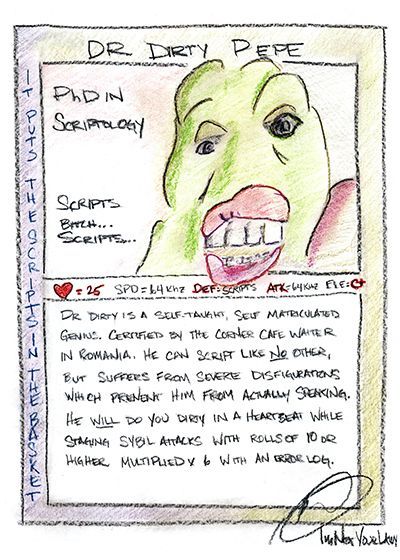 DR DIRTY PEPE
IT PUTS THE SCRIPTS IN THE BASKET
PHD IN
SCRIPTOLOGY
SCRIPTS
BITCH...
SCRIPTS...
= 25 SPD = 64KHZ DEF: SCRIPTS ATK = 64KHZ ELE: C+
DR DIRTY IS A SELF-TAUGHT, SELF MATRICULATED
GENIUS. CERTIFIED BY THE CORNER CAFE WAITER
IN ROMANIA. HE CAN SCRIPT LIKE NO OTHER,
BUT SUFFERS FROM SEVERE DISFIGURATIONS
WHICH PREVENT HIM FROM ACTUALLY SPEAKING.
HE WILL DO YOU DIRTY IN A HEARTBEAT WHILE
STAGING SYBIL ATTACKS WITH ROLLS OF 10 OR
HIGHER MULTIPLIED X 6 WITH AN ERROR LOG.